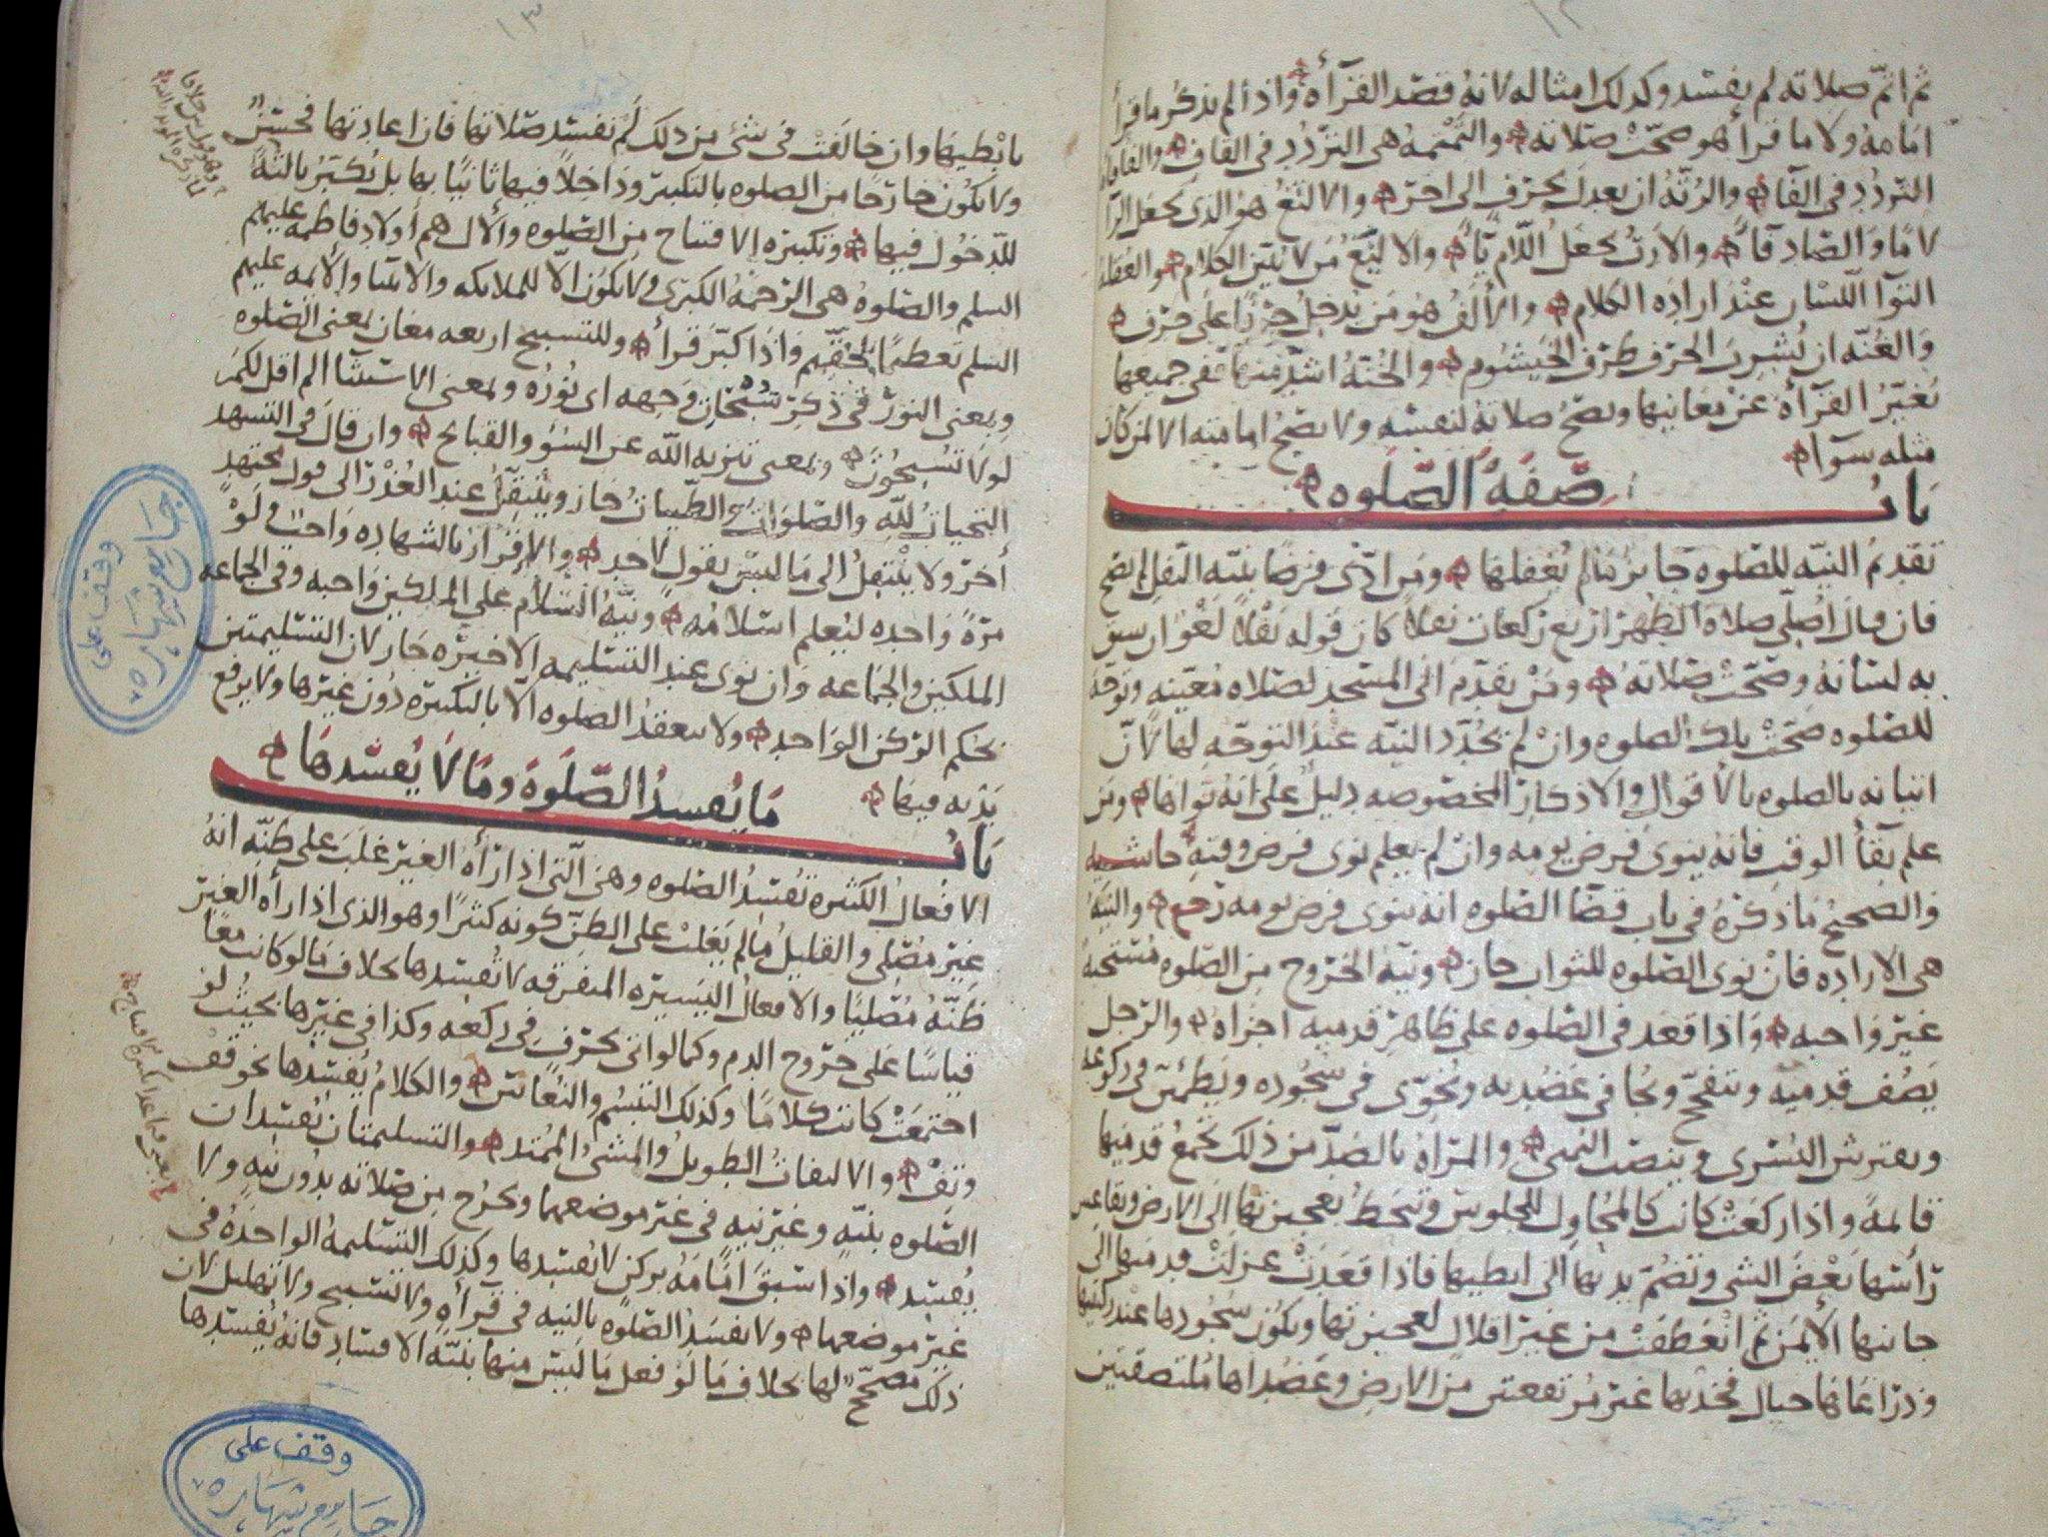 ثم اتمّ صلاته لم يفسد وكذلك امثاله لانه قصد القرأه واذا لم يذكر ما قرأ
امامه ولا ما قرأ هو صحّت صلاته والتمتمه هى التردد فى القاف والفافاه
التردد فى الفا والرتّه ان يعدل بحرف الى اخر والالثغ هو الذى يجعل الرا
لامًا والصاد قآء والارتّ يجعل اللام يآء والاليغ من لا يبيّن الكلام والعقله
التوآ اللسان عند اراده الكلام والالفّ هو من يدخل حرفًا على حرف
والغنّه ان يُشرب الحرف طرف الخيشوم والخنّه اشدّ منها ففى جميعها
تغيّر القرآه عن معانيها وتصحّ صلاته لنفسه ولا تصحّ امامته الا لمن كان
مثله سوآء
باب صفه الصلوه
تقديم النيه للصلوه جايز ما لم يغفلها ومن ادّى فرضًا بنيّه النفل لم يصح
فان قال اصلّى صلاة الظهر اربع ركعات نفلا كان قوله نفلًا لغوًا ان سبق
به لسانه وصحّت صلاته ومن تقدّم الى المسجد لصلاه معينه وتوجّه
للصلوه صحّت تلك الصلوه وان لم يجدّد النيه عند التوجّه لها لانّ
اتيانه بالصلوه بالاقوال والاذكار المخصوصه دليل على انه نواها ومن
علم بقآ الوقت فانه ينوى فرض يومه وان لم يعلم نوى فرض وقته حاشيه
والصحيح ما ذكره فى باب قضا الصلوه انه ينوى فرض يومه رجع والنيّه
هى الاراده فان نوى الصلوه للثواب جاز ونيّه الخروج من الصلوه مستحبه
غير واجبه واذا قعد فى الصلوه على ظاهر قدميه اجزاه والرجل
يصف قدميه ويتفحّج ويجافى عضديه ويخوّى فى سجوده ويطمئن فى ركوعه
ويفترش اليسرى وينصب اليمنى والمرأة بالضدّ من ذلك تجمع قدميها
قائمةً واذا ركعت كانت كالمحاول للجلوس وتنحطّ بعجيزتها الى الارض وتقاعس
رأسها بعض الشى وتضمّ يديها الى ابطيها فاذا قعدت عزلت قدميها الى
جانبها الأيمن ثم انعطفت من غير اقلال لعجيزتها ويكون سجودها عند ركبتيها
وذراعاها حيال فخذيها غير مرتفعتين من الارض وعضداها ملتصقتين
بابطيها وان خالفت فى شئ من ذلك لم تفسد صلاتها فان اعادتها فحسنٌ
ولا يكون خارجًا من الصلوه بالتكبير وداخلاً فيها ثانيًا بها بل يكبّر بالثه
للدخول فيها وتكبيره الافتتاح من الصلوه والآل هم أولاد فاطمه عليهم
السلم والصلوهُ هى الرحمهُ الكبرى ولا يكون الّا للملايكه والانبيا والأئمه عليهم
السلم تعظيمًا لحقّهم واذا كبّر قرأ وللتسبيح اربعه معانٍ بمعنى الصلوه
وبمعنى النور فى ذكر سُبُحات وجهه اى نوره وبمعنى الاستثنآ الم اقل لكم
لولا تسبّحون وبمعنى تنزيه الله عن السوء والقبايح وان قال فى التشهد
التحيات لله والصلوات والطيبات جاز وينتقل عند العذر الى قول مجتهدٍ
آخر ولا ينتقل الى ما ليس بقول لاحد والاقرار بالشهاده واجبٌ ولو
مرّةً واحده ليُعلم اسلامه ونيّه السلام على الملكين واجبه وفى الجماعه
الملكين والجماعه وان نوى عند التسليمه الاخيره جاز لان التسليمتين
بحكم الركن الواحد ولا ينعقد الصلوه الّا بالتكبيره دون غيرها ولا يرفع
يديه فيها
باب ما يفسد الصلوه وما لا يفسدها
الافعال الكثيرة تفسد الصلوه وهى الّتى اذا رأه الغير غلب على ظنّه انه
غير مصلى والقليل ما لم يغلب على الظنّ كونه كثيرًا وهو الذى اذا رأه الغير
ظنّه مصليًا والافعال اليسيره المتفرقه لا تفسدها بخلاف ما لو كانت معًا
قياسًا على خروج الدم وكما لو اتى بحرفٍ فى ركعه وكذا فى غيرها بحيث لو
اجتمعت كانت كلامًا وكذلك التبسّم والنعاس والكلام يفسدها نحو قف
وتف والالتفات الطويل والمشىُ الممتد والتسليمتان تفسدان
الصلوه بنيّهٍ وغير نيهٍ فى غير موضعهما ويخرج من صلاته بدون نيه ولا
يفسد واذا سبق امامَهُ بركن لا تفسدها وكذلك التسليمه الواحده فى
غير موضعهما ولا تفسد الصلوه بالنيه فى قرآه ولا تسبيح ولا تهليل لان
ذلك مصحّحٌ لها بخلاف ما لو فعل ما ليس منها بنيّه الافساد فانه يفسدها
وقف على
جامع شهاره
وقف على
جامع شهاره